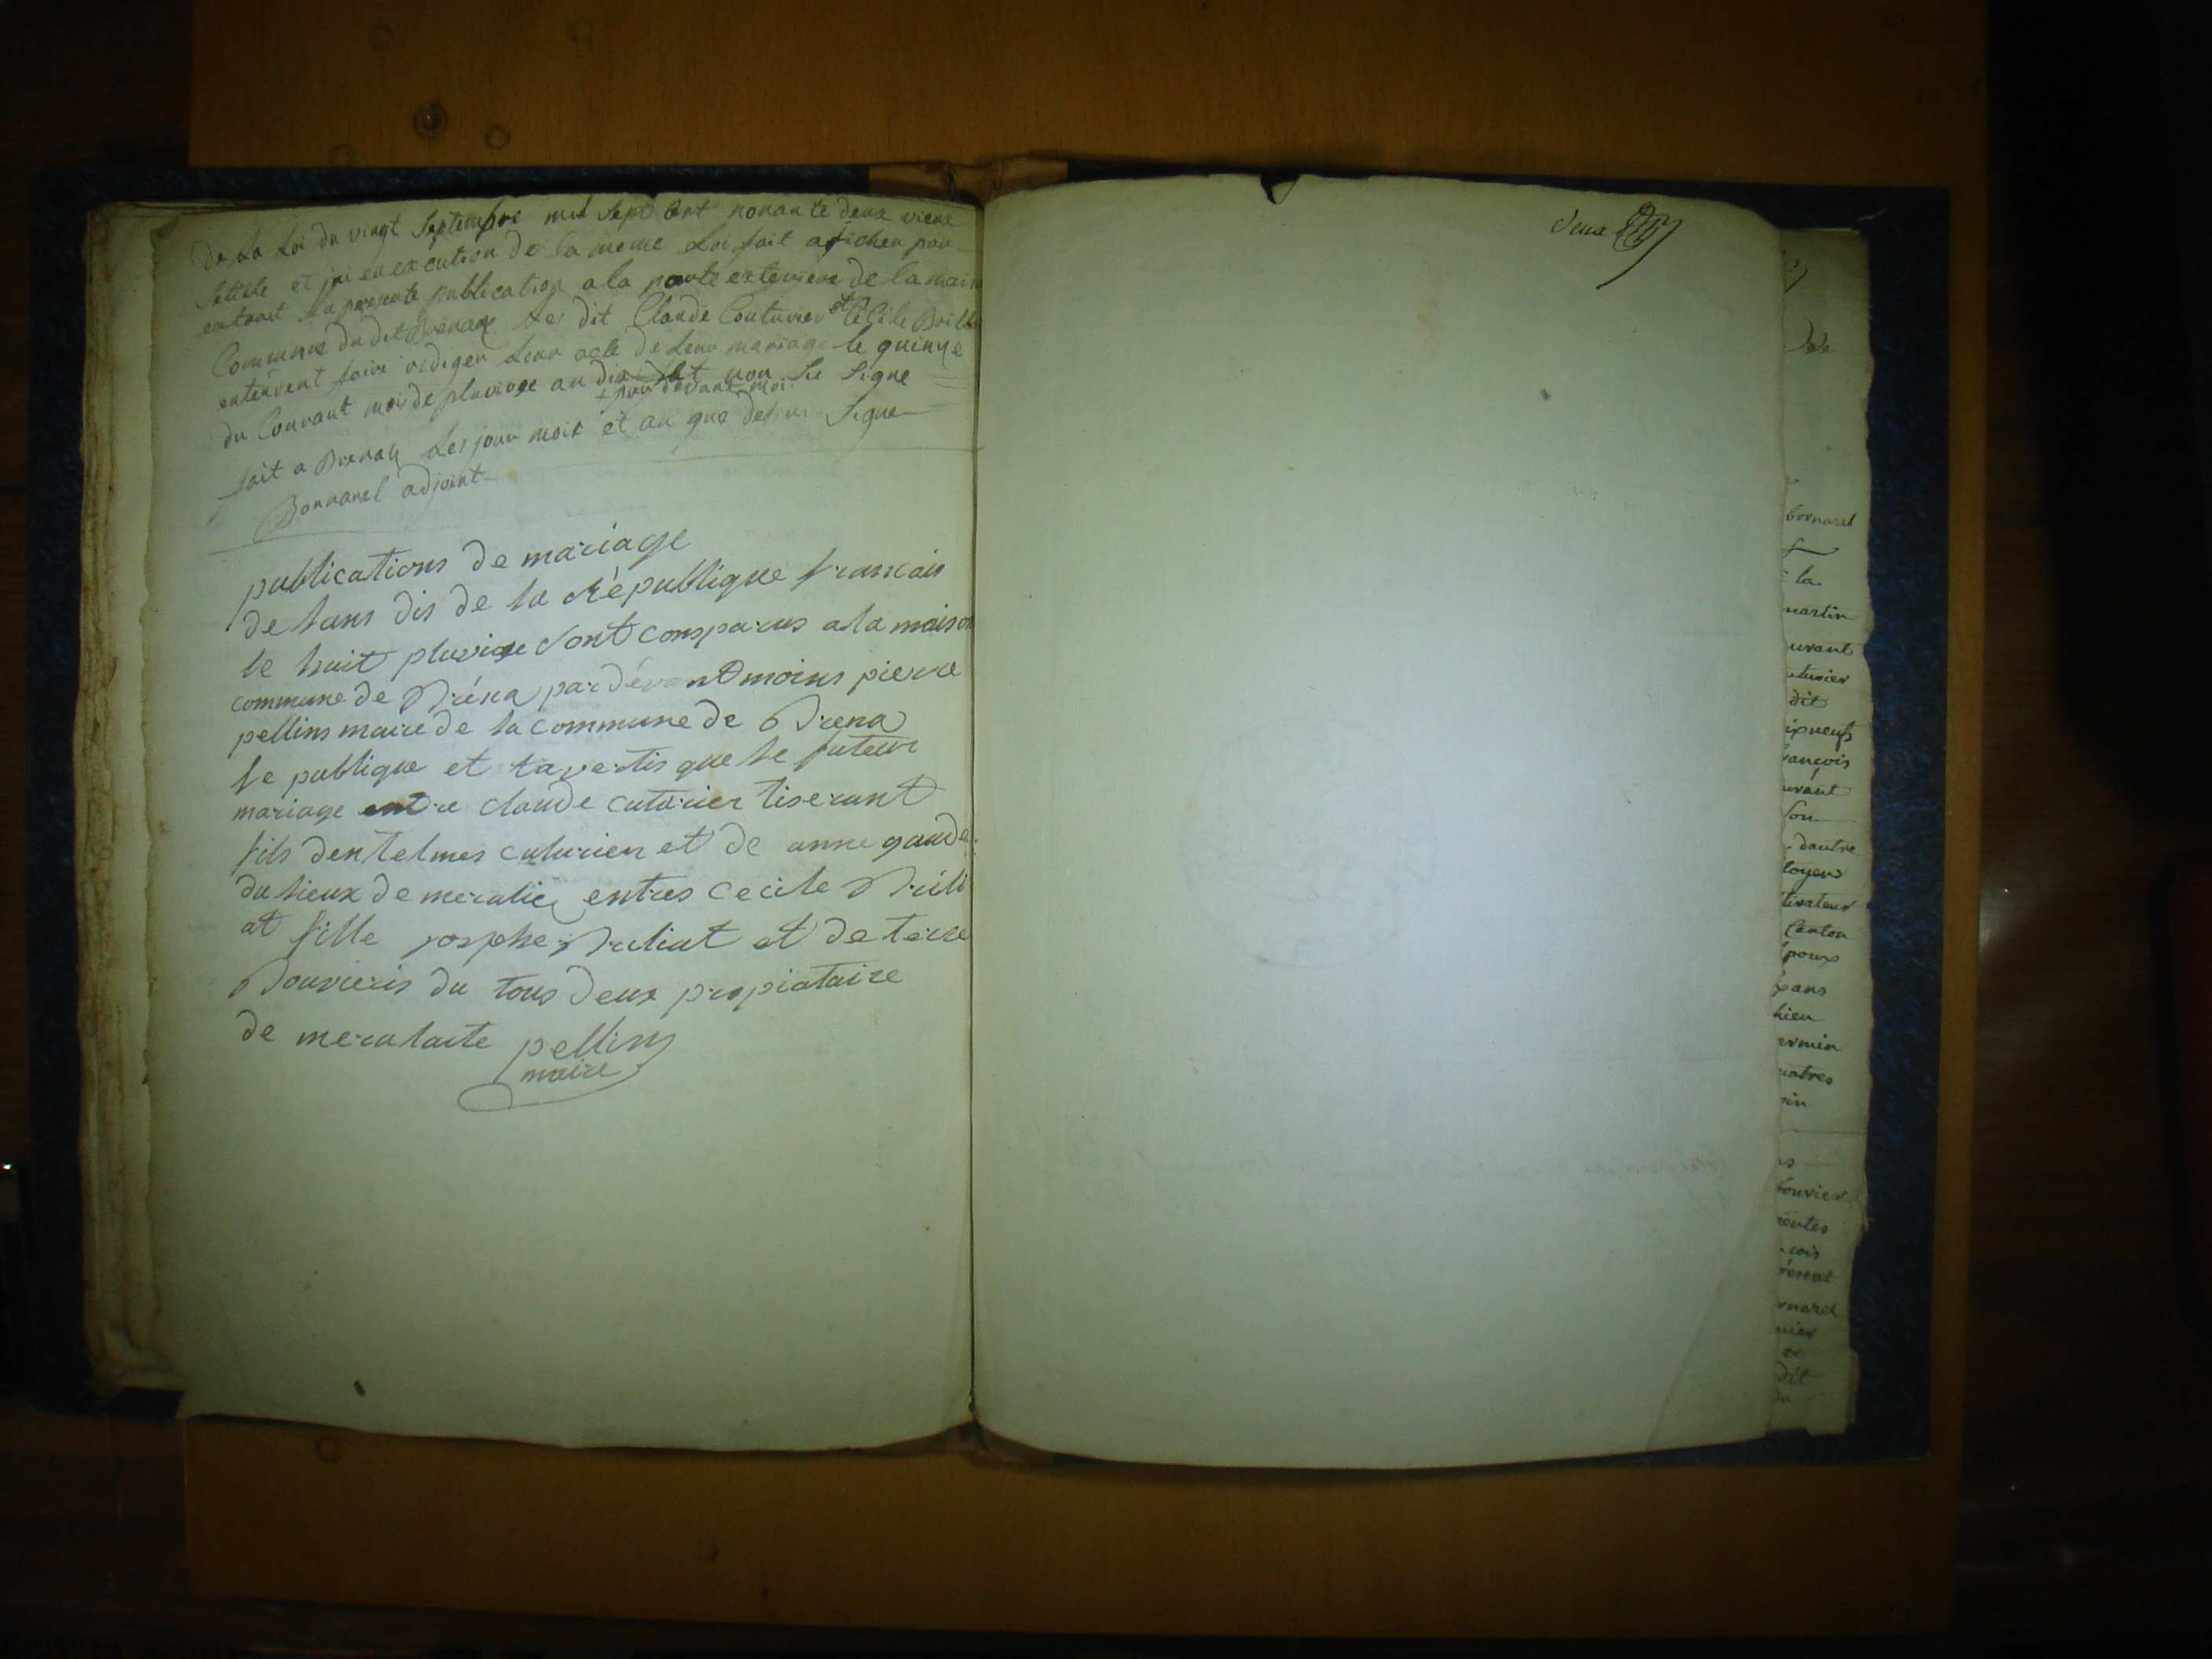 de La Loi du vingt Septembre mil Sept Cent nonante deux vieux
Setille et j'ai en execution de la meme Loi fait aficher par
extrait la presente publication a la porte exterieure de la maison
Commune du dit Brenaz Les dit Claude Couturier et Cecile Brillat
entendent faire rediger Leur acte de Leur mariage le quinze
du Courant mois de pluviose an dix et non Sie Signe
+ par devant moi
fait a Brenaz Les jour mois et an que dessus Signe
Bornarel adjoint
publications de mariage
de lans dis de la République francais
le huit pluviose sont consparus a la maison
commune de Bréna pardévant moins pierre
pellins maire de la commune de Brena
le publique et tavertis que le futeur
mariage entre claude cuturier tiserant
fils dentelmes cuturier et de anne gaude
du lieux de meralie entres cecile Brili
at fille josphe Briliat et de terse
Bouvieris du tous deux propiataire
de meralaite pellins
maire
deux
bornarel
la
martin
urant
uturier
dit
ipneufs
rancois
urant
Son
dautre
toyen
tivateur
Canton
poux
ans
hieu
ermin
uatres
in
ouvier
rentes
cois
renat
rnarel
nier
dit
du